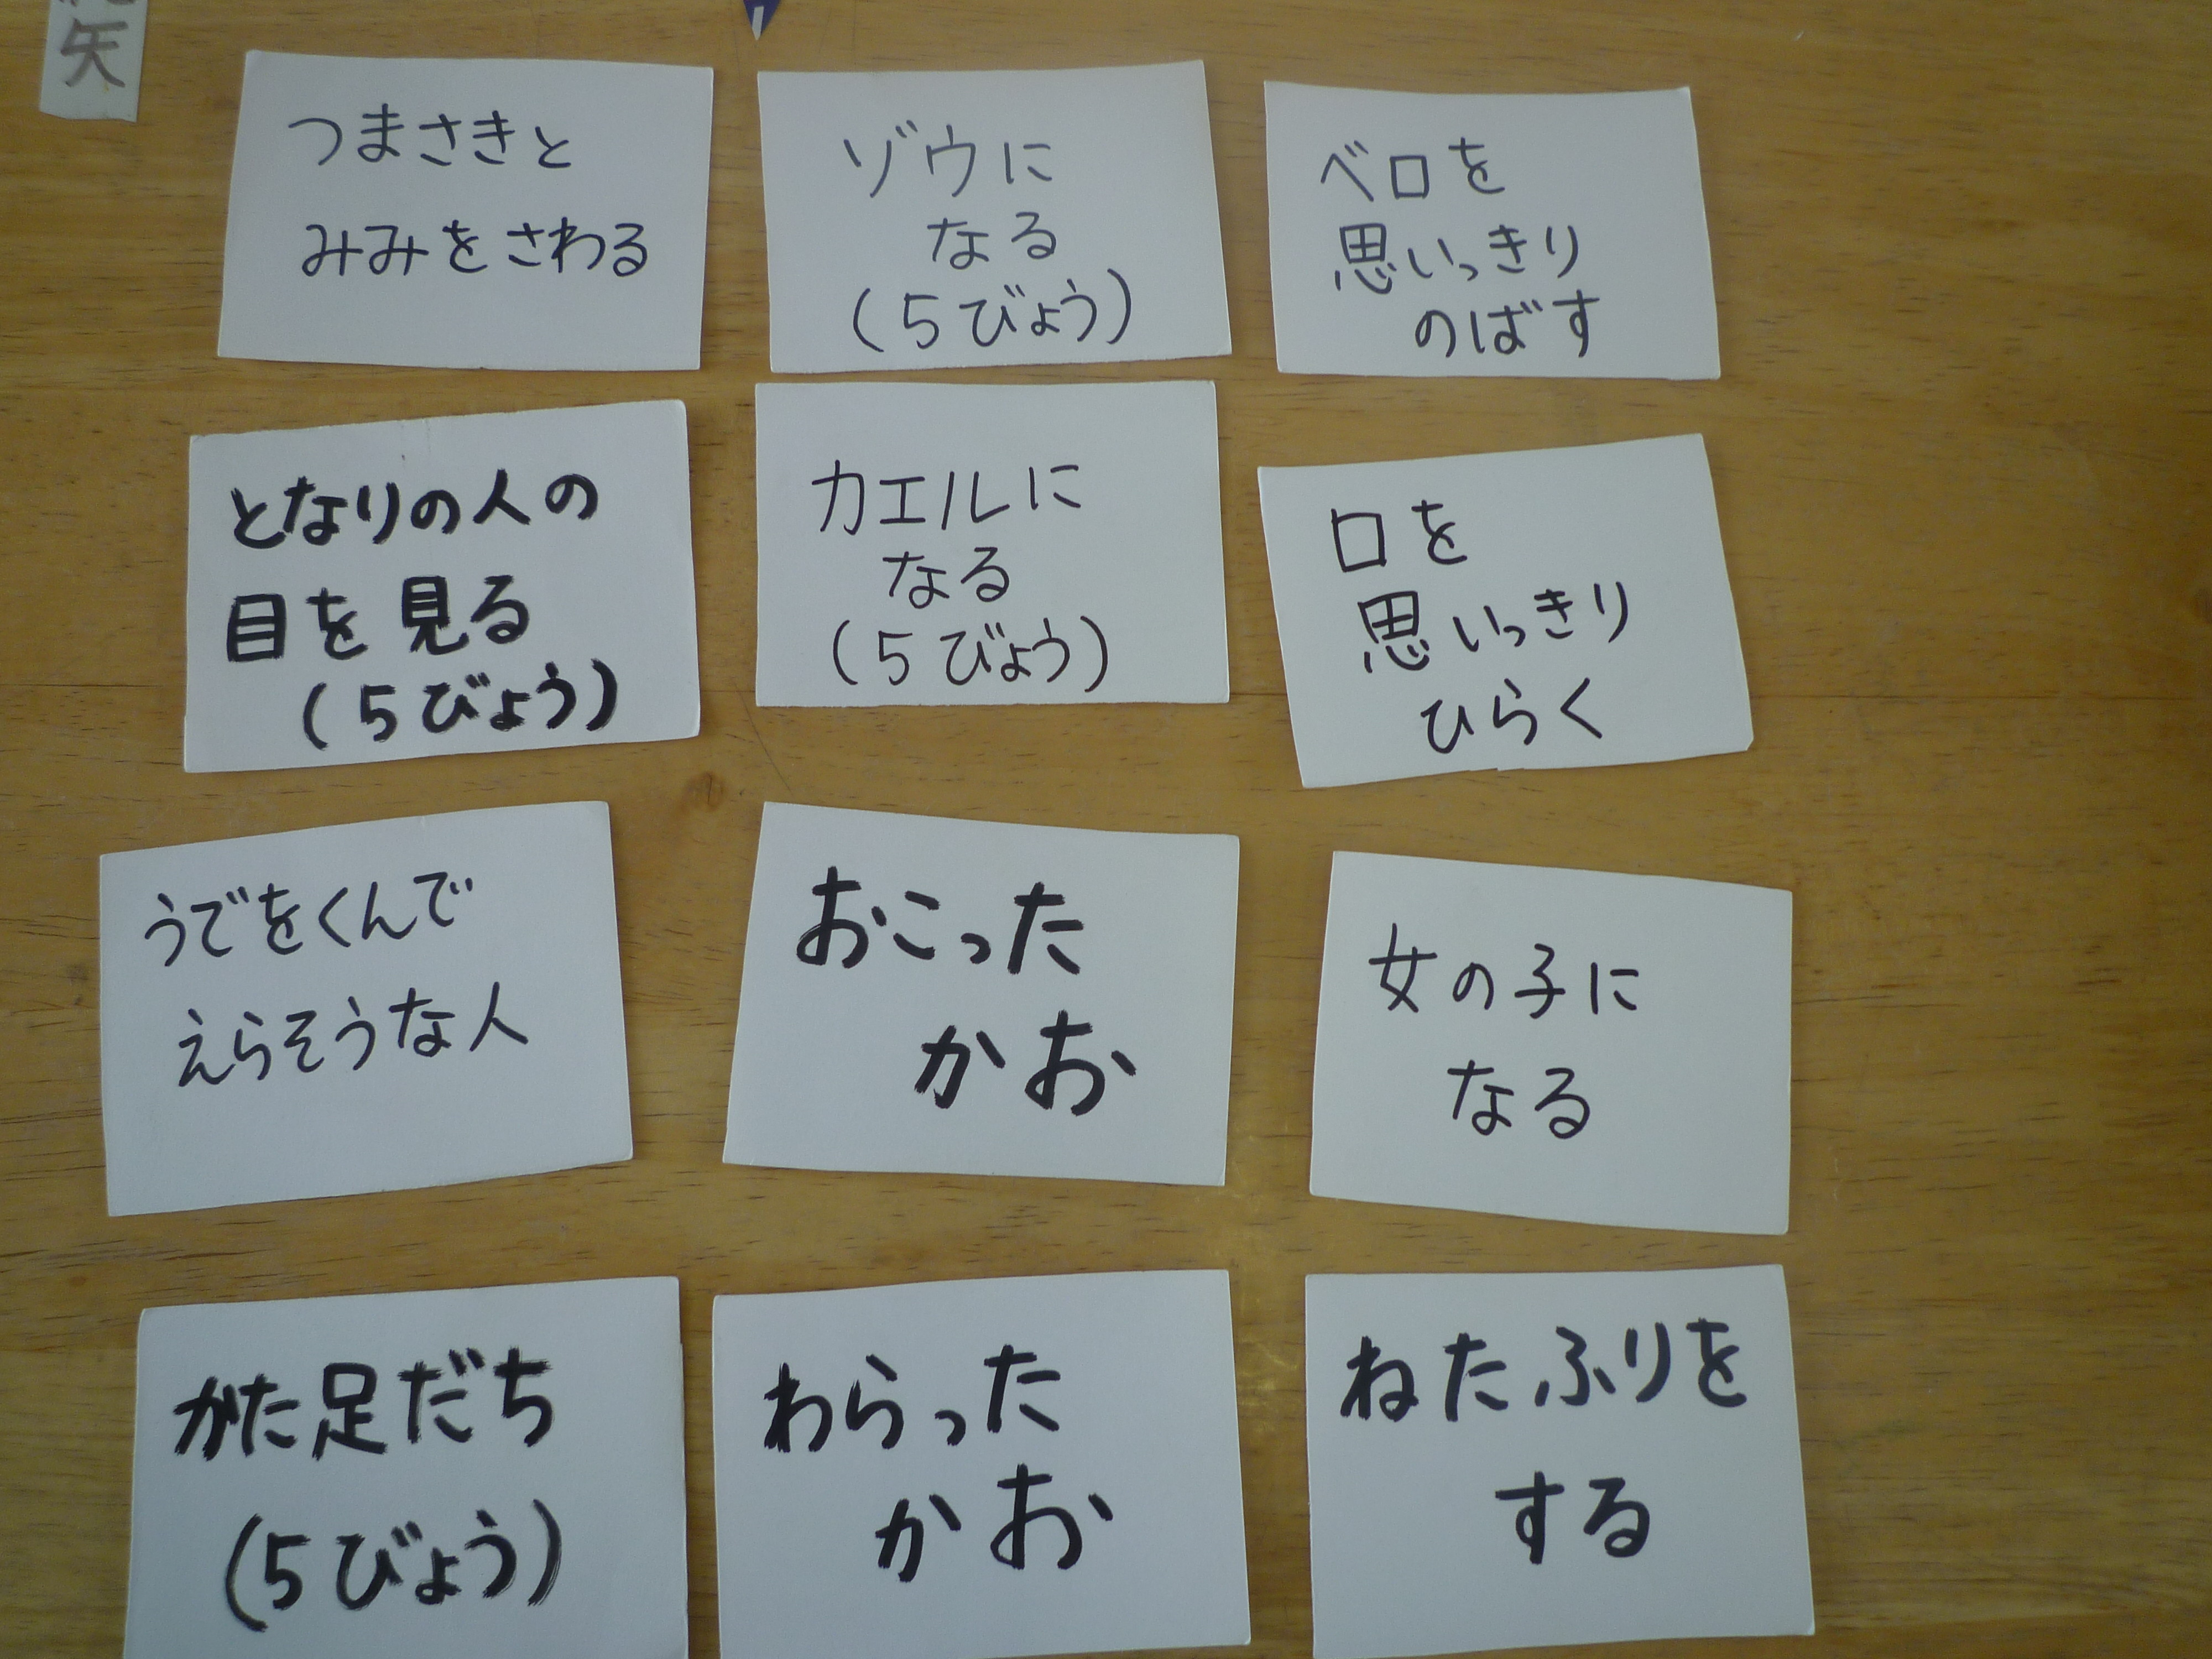 矢
つまさきと
みみをさわる
ゾウに
なる
(5びょう)
ベロを
思いっきり
のばす
となりの人の
目を見る
(5びょう)
カエルに
なる
(5びょう)
口を
思いっきり
ひらく
うでをくんで
えらそうな人
おこった
かお
女の子に
なる
かた足だち
(5びょう)
わらった
かお
ねたふりを
する